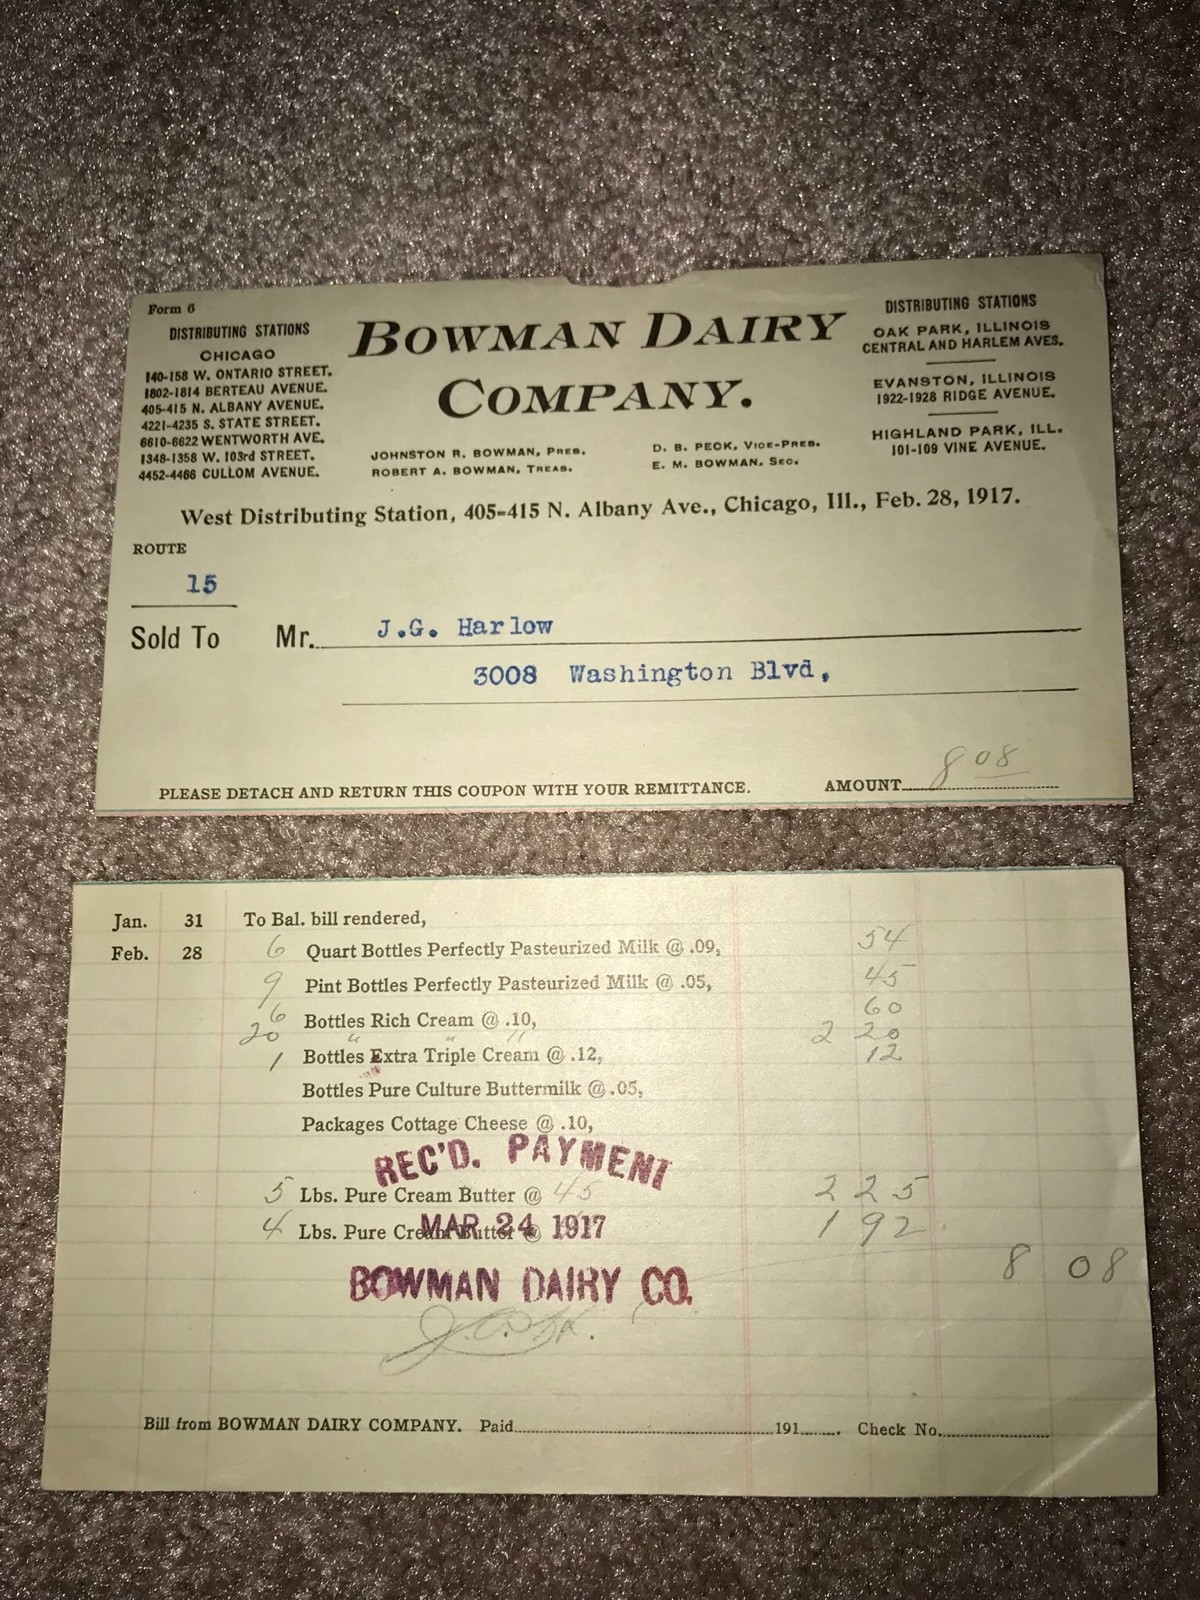 Form 6
DISTRIBUTING STATIONS
CHICAGO
140-158 W. ONTARIO STREET.
1802-1814 BERTEAU AVENUE.
405-415 N. ALBANY AVENUE.
4221-4235 S. STATE STREET.
6610-6622 WENTWORTH AVE.
1348-1358 W. 103rd STREET.
4452-4466 CULLOM AVENUE.
BOWMAN DAIRY
COMPANY.
JOHNSTON R. BOWMAN, PRES.
ROBERT A. BOWMAN, TREAS.
D. B. PECK, VICE-PRES.
E. M. BOWMAN, SEC.
DISTRIBUTING STATIONS
OAK PARK, ILLINOIS
CENTRAL AND HARLEM AVES.
EVANSTON, ILLINOIS
1922-1928 RIDGE AVENUE.
HIGHLAND PARK, ILL.
101-109 VINE AVENUE.
West Distributing Station, 405-415 N. Albany Ave., Chicago, Ill., Feb. 28, 1917.
ROUTE
15
Sold To Mr. J.G. Harlow
3008 Washington Blvd,
PLEASE DETACH AND RETURN THIS COUPON WITH YOUR REMITTANCE. AMOUNT 8 08
Jan. 31 To Bal. bill rendered,
Feb. 28 6 Quart Bottles Perfectly Pasteurized Milk @ .09, 54
9 Pint Bottles Perfectly Pasteurized Milk @ .05, 45
6 Bottles Rich Cream @ .10, 60
20 " " " 2 20
1 Bottles Extra Triple Cream @ .12, 12
Bottles Pure Culture Buttermilk @ .05,
Packages Cottage Cheese @ .10,
REC'D. PAYMENT
5 Lbs. Pure Cream Butter @ 45 2 25
4 Lbs. Pure Cream Butter @ 1 92
MAR 24 1917
8 08
BOWMAN DAIRY CO.
Bill from BOWMAN DAIRY COMPANY. Paid 191 Check No.